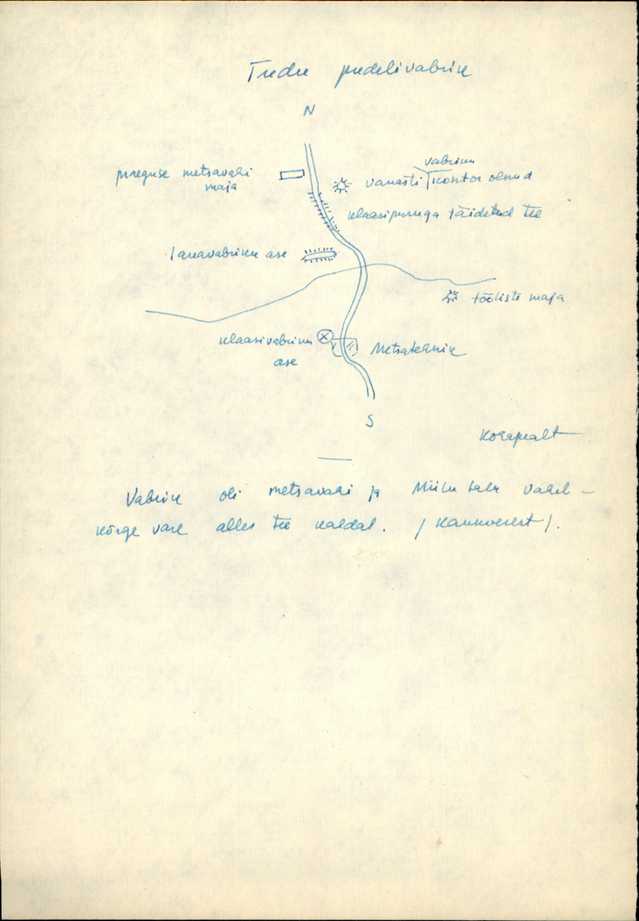 Tredre pudelivabrik
N
praeguse metsavahi
maja
vabriku
vanasti kontor olnud
klaasipuruga täidetud tee
lauavabriku ase
tööliste maja
klaasivabriku
ase
Metsatehnik
S
Korapealt
Vabrik oli metsavahi ja Miilu talu vahel –
kõrge vare alles tee kaldal. / Kannverest /.